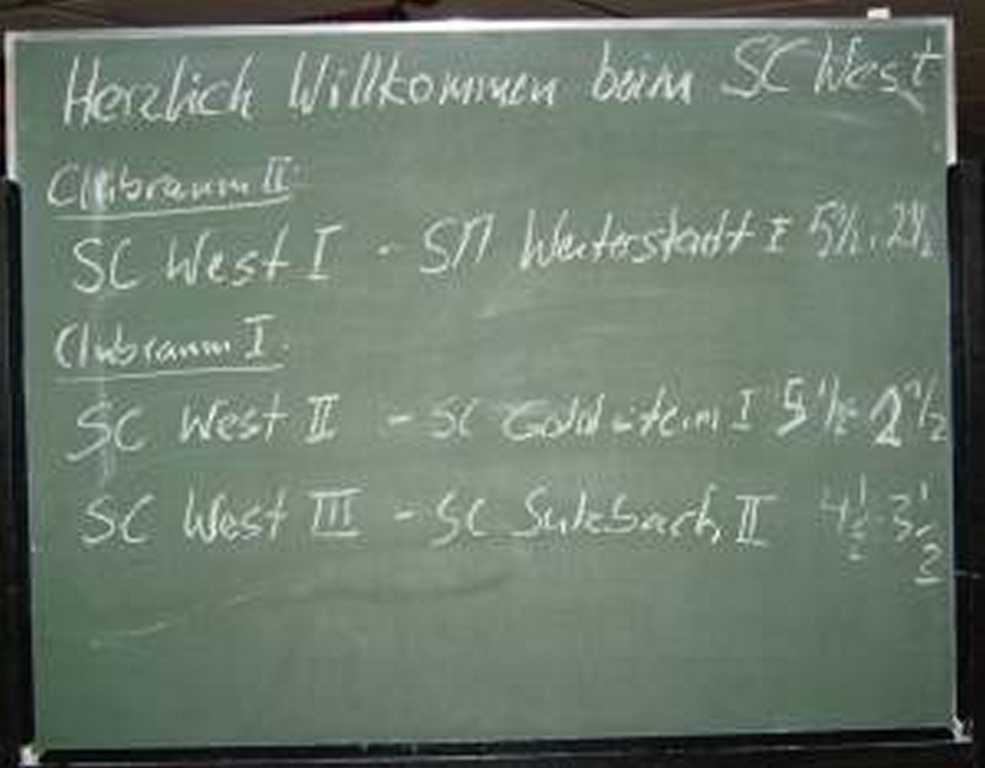 Herzlich Willkommen beim SC West
Clubraum II:
SC West I - SM Weiterstadt I 5½ : 2½
Clubraum I:
SC West II - SC Goldstein I 5½ : 2½
SC West III - SC Sulzbach II 4½ : 3½